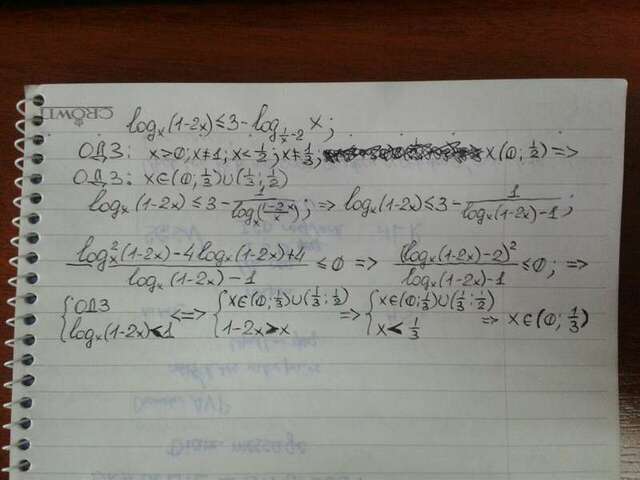 CROWN
logₓ(1-2x) ≤ 3 - log_{1/x - 2} x;
ОДЗ: x>0; x≠1; x<1/2; x≠1/3; x(0; 1/2) =>
ОДЗ: x∈(0; 1/3)∪(1/3; 1/2)
logₓ(1-2x) ≤ 3 - 1/logₓ((1-2x)/x); => logₓ(1-2x) ≤ 3 - 1/(logₓ(1-2x)-1);
(logₓ²(1-2x) - 4logₓ(1-2x) + 4)/(logₓ(1-2x) - 1) ≤ 0 => (logₓ(1-2x)-2)²/(logₓ(1-2x)-1) ≤ 0; =>
{ОДЗ <=> {x∈(0; 1/3)∪(1/3; 1/2) => {x∈(0; 1/3)∪(1/3; 1/2) => x∈(0; 1/3)
logₓ(1-2x)<1 1-2x>x x<1/3